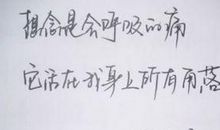 想念是会呼吸的痛
它活在我身上所有角落